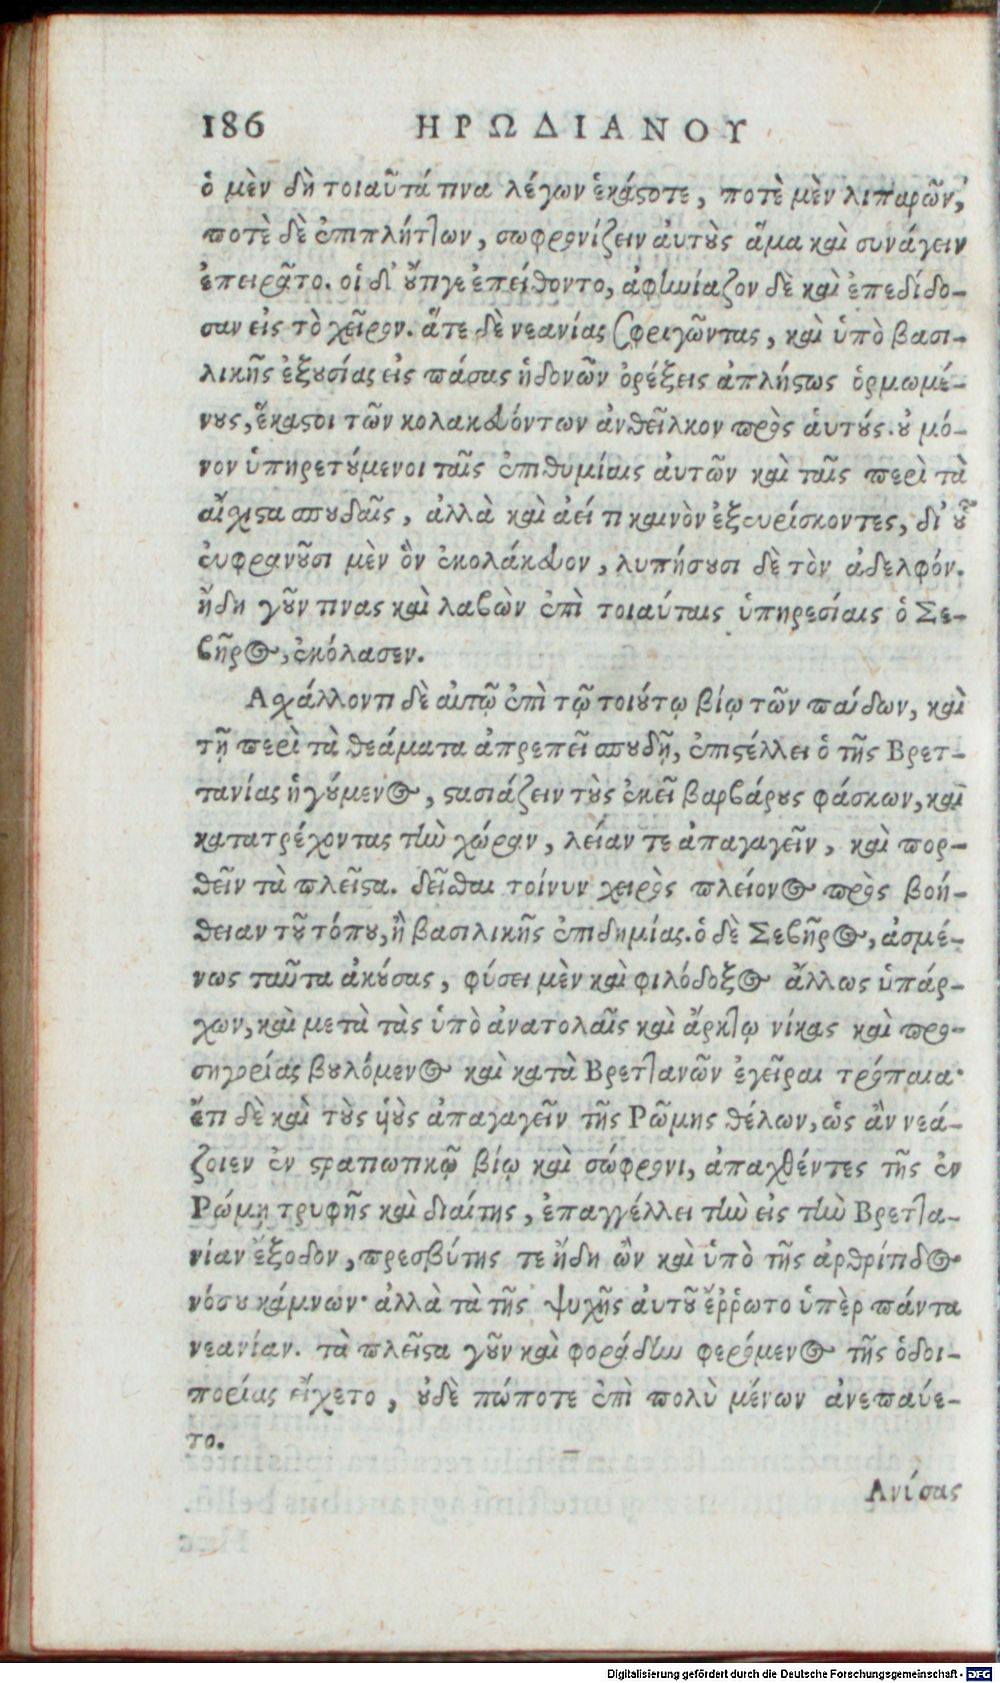 186 ΗΡΩΔΙΑΝΟΥ
ὁ μὲν δὴ τοιαῦτά τινα λέγων ἑκάϛοτε, ποτὲ μὲν λιπαρῶν,
ποτὲ δὲ ἐπιπλήττων, σωφρονίζειν αὐτοὺς ἅμα καὶ συνάγειν
ἐπειρᾶτο. οἱ δ᾽ οὔτιγε ἐπείθοντο, ἀφηνίαζον δὲ καὶ ἐπεδίδο-
σαν εἰς τὸ χεῖρον. ἅτε δὲ νεανίας σφριγῶντας, καὶ ὑπὸ βασι-
λικῆς ἐξουσίας εἰς πάσας ἡδονῶν ὀρέξεις ἀπλήϛως ὁρμωμέ-
νους, ἕκαϛοι τῶν κολακευόντων ἀνθεῖλκον πρὸς ἑαυτούς. οὐ μό-
νον ὑπηρετούμενοι ταῖς ἐπιθυμίαις αὐτῶν καὶ ταῖς περὶ τὰ
αἴχιϛα σπουδαῖς, ἀλλὰ καὶ ἀεί τι καινὸν ἐξευρίσκοντες, δι᾽ οὗ
εὐφρανοῦσι μὲν ὃν ἐκολάκευον, λυπήσουσι δὲ τὸν ἀδελφόν.
ἤδη γοῦν τινας καὶ λαβὼν ἐπὶ τοιαύταις ὑπηρεσίαις ὁ Σε-
βῆρος, ἐκόλασεν.
Αχάλλοντι δὲ αὐτῷ ἐπὶ τῷ τοιούτῳ βίῳ τῶν παίδων, καὶ
τῇ περὶ τὰ θεάματα ἀπρεπεῖ σπουδῇ, ἐπιϛέλλει ὁ τῆς Βρετ-
τανίας ἡγούμενος, ϛασιάζειν τοὺς ἐκεῖ βαρβάρους φάσκων, καὶ
κατατρέχοντας τὴν χώραν, λείαν τε ἀπαγαγεῖν, καὶ πορ-
θεῖν τὰ πλεῖϛα. δεῖσθαι τοίνυν χειρὸς πλείονος πρὸς βοή-
θειαν τοῦ τόπου, ἢ βασιλικῆς ἐπιδημίας. ὁ δὲ Σεβῆρος, ἀσμέ-
νως ταῦτα ἀκούσας, φύσει μὲν καὶ φιλόδοξος ἄλλως ὑπάρ-
χων, καὶ μετὰ τὰς ὑπὸ ἀνατολαῖς καὶ ἄρκτῳ νίκας καὶ προ-
σηγορίας βουλόμενος καὶ κατὰ Βρεττανῶν ἐγεῖραι τρόπαια·
ἔτι δὲ καὶ τοὺς υἱοὺς ἀπαγαγεῖν τῆς Ρῶμης θέλων, ὡς ἂν νεά-
ζοιεν ἐν ϛρατιωτικῷ βίῳ καὶ σώφρονι, ἀπαχθέντες τῆς ἐν
Ρώμῃ τρυφῆς καὶ διαίτης, ἐπαγγέλλει τὴν εἰς τὴν Βρεττα-
νίαν ἔξοδον, πρεσβύτης τε ἤδη ὢν καὶ ὑπὸ τῆς ἀρθρίτιδος
νόσου κάμνων· ἀλλὰ τὰ τῆς ψυχῆς αὐτοῦ ἔῤῥωτο ὑπὲρ πάντα
νεανίαν. τὰ πλεῖϛα γοῦν καὶ φοράδην φερόμενος τῆς ὁδοι-
πορίας εἴχετο, οὐδὲ πώποτε ἐπὶ πολὺ μένων ἀνεπαύε-
το.
Ανύσας
Digitalisierung gefördert durch die Deutsche Forschungsgemeinschaft - DFG